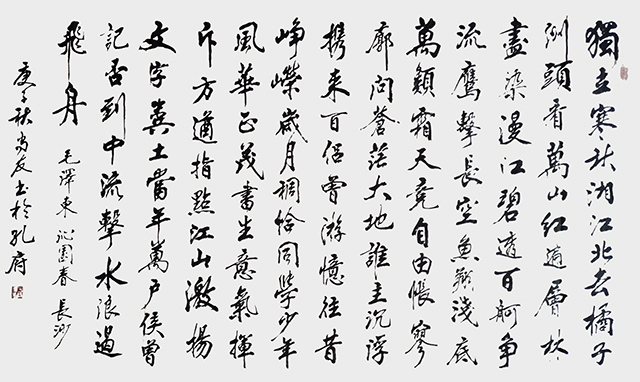 獨立寒秋湘江北去橘子
洲頭看萬山紅遍層林
盡染漫江碧透百舸爭
流鷹擊長空魚翔淺底
萬類霜天竞自由悵寥
廓問蒼茫大地誰主沉浮
携来百侣曾游憶往昔
崢嶸歲月稠恰同學少年
風華正茂書生意氣揮
斥方遒指點江山激揚
文字糞土當年萬户侯曾
記否到中流擊水浪遏
飛舟 毛澤東沁園春長沙
庚子秋尚友书於孔府